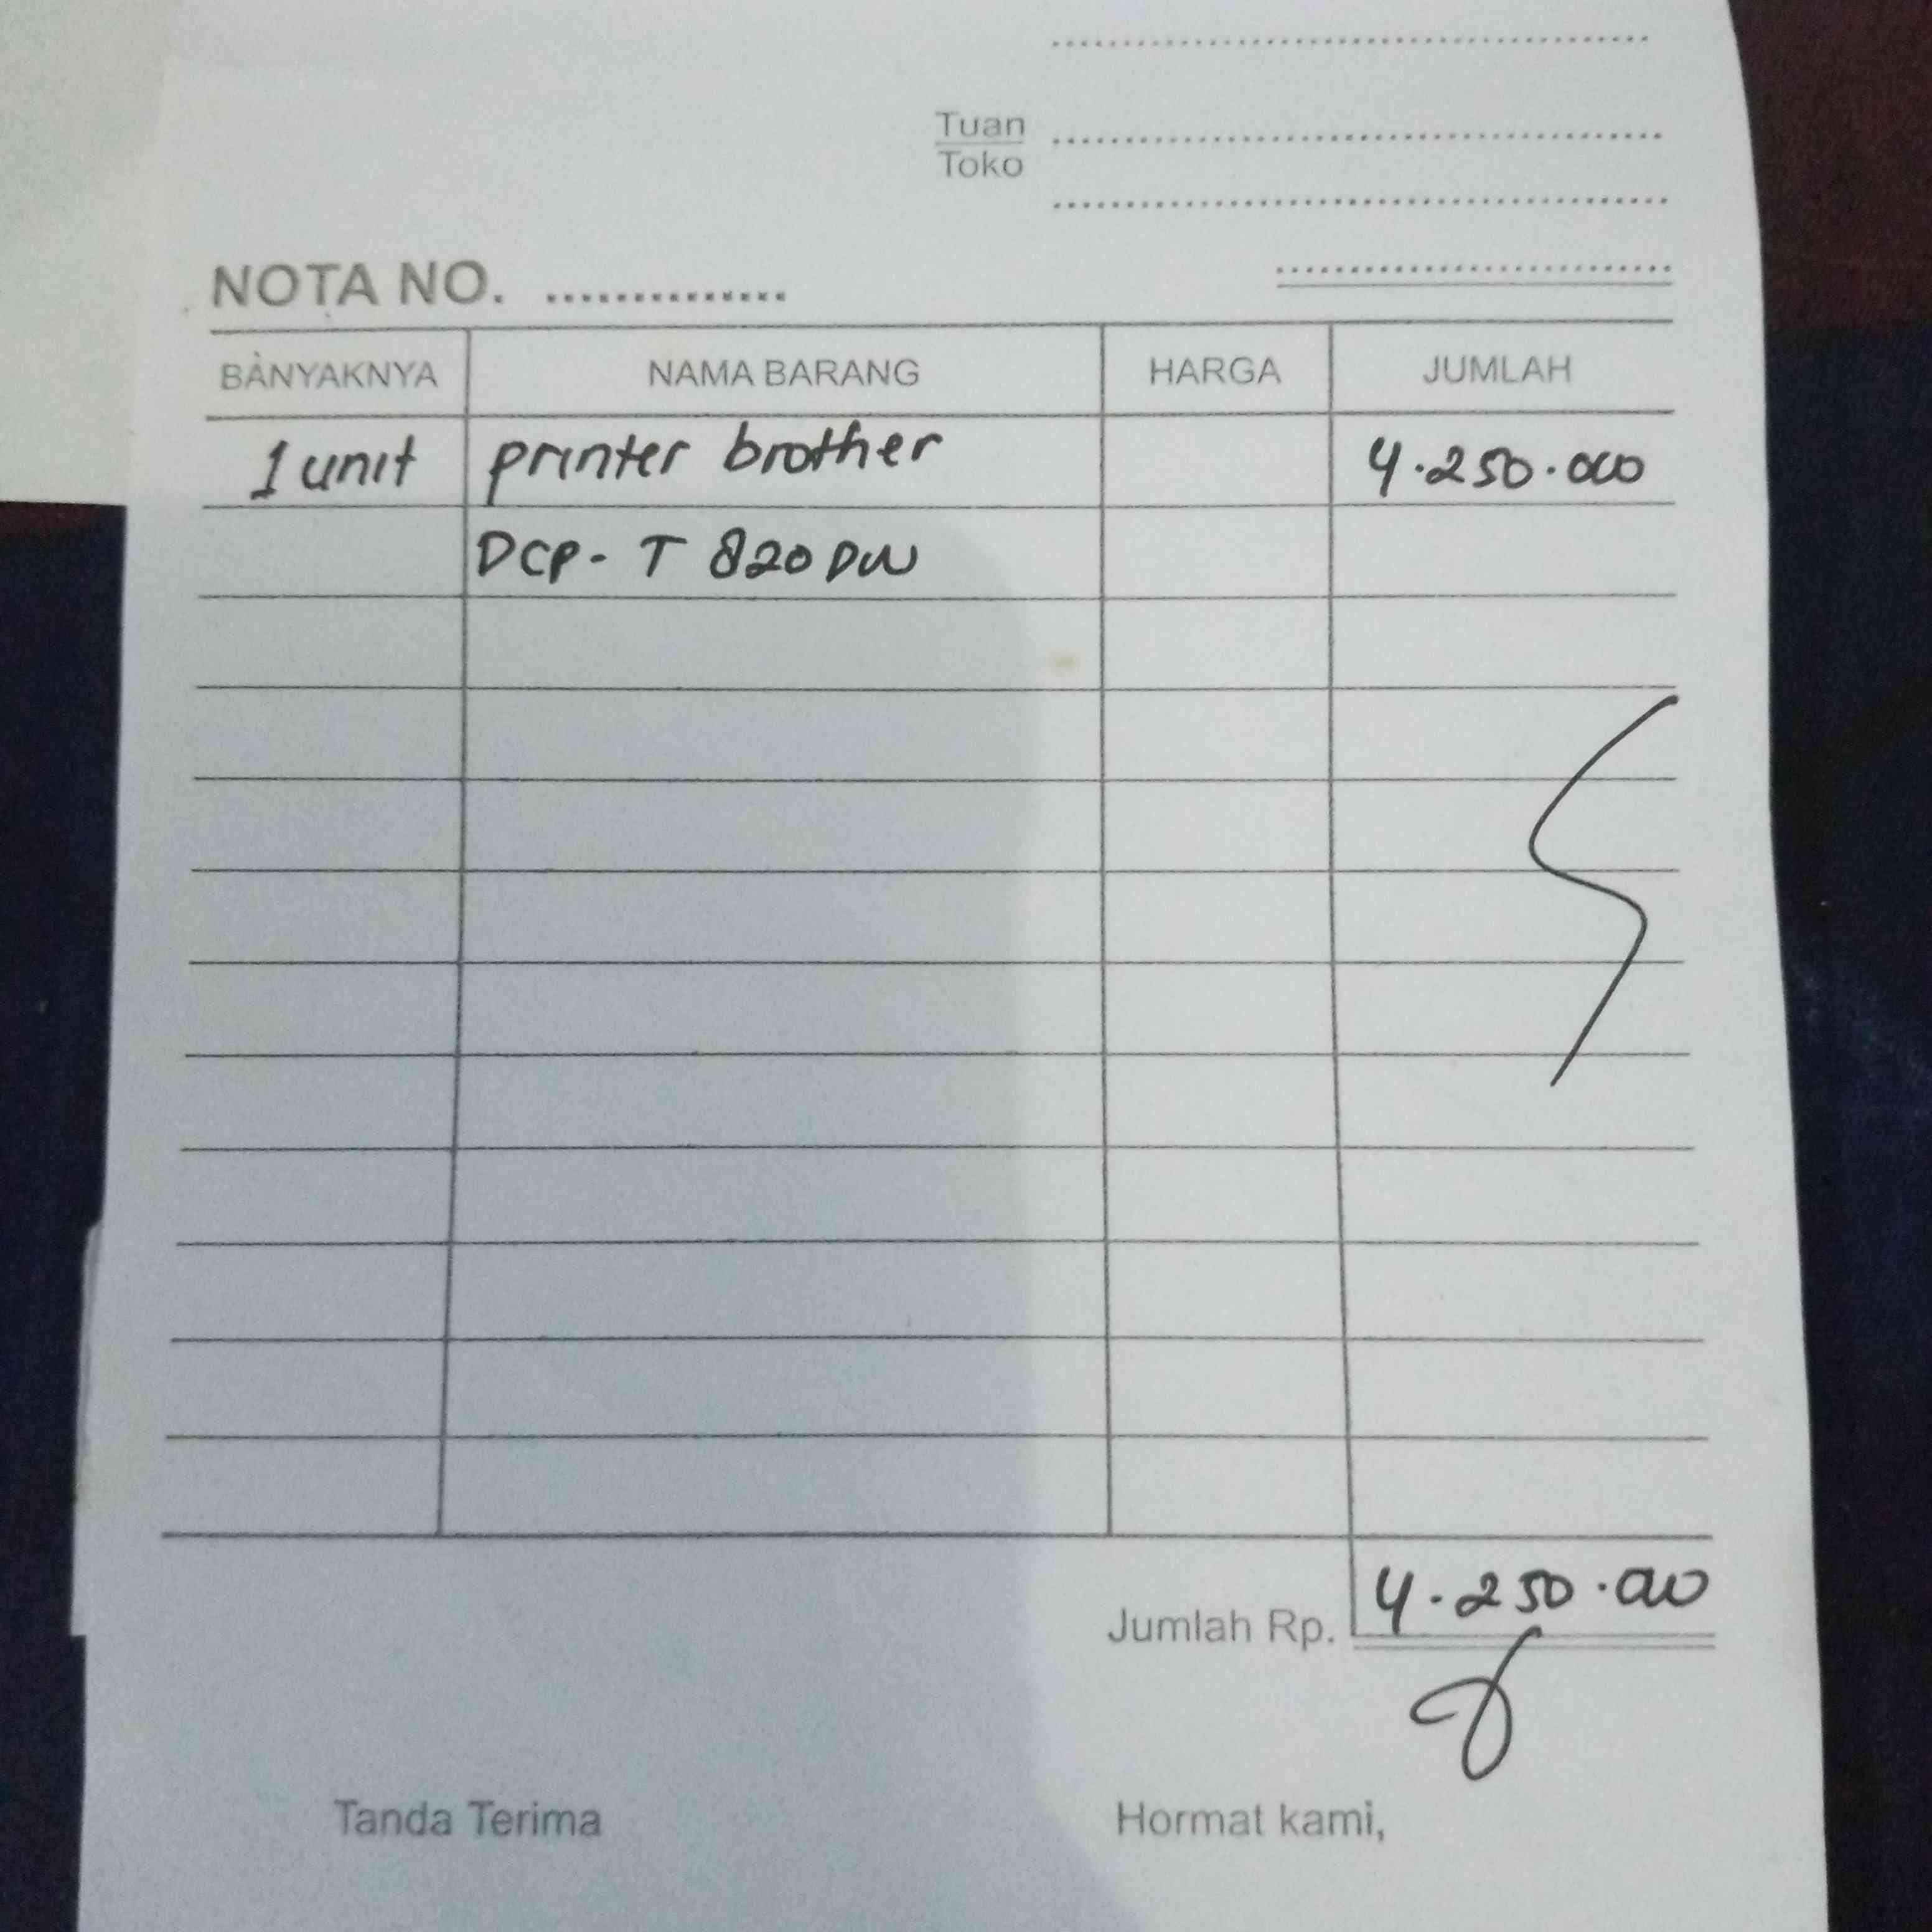 Tuan
Toko
NOTA NO.
BANYAKNYA NAMA BARANG HARGA JUMLAH
1 unit printer brother 4.250.000
DCP- T 820 DW
Jumlah Rp. 4.250.000
Tanda Terima Hormat kami,